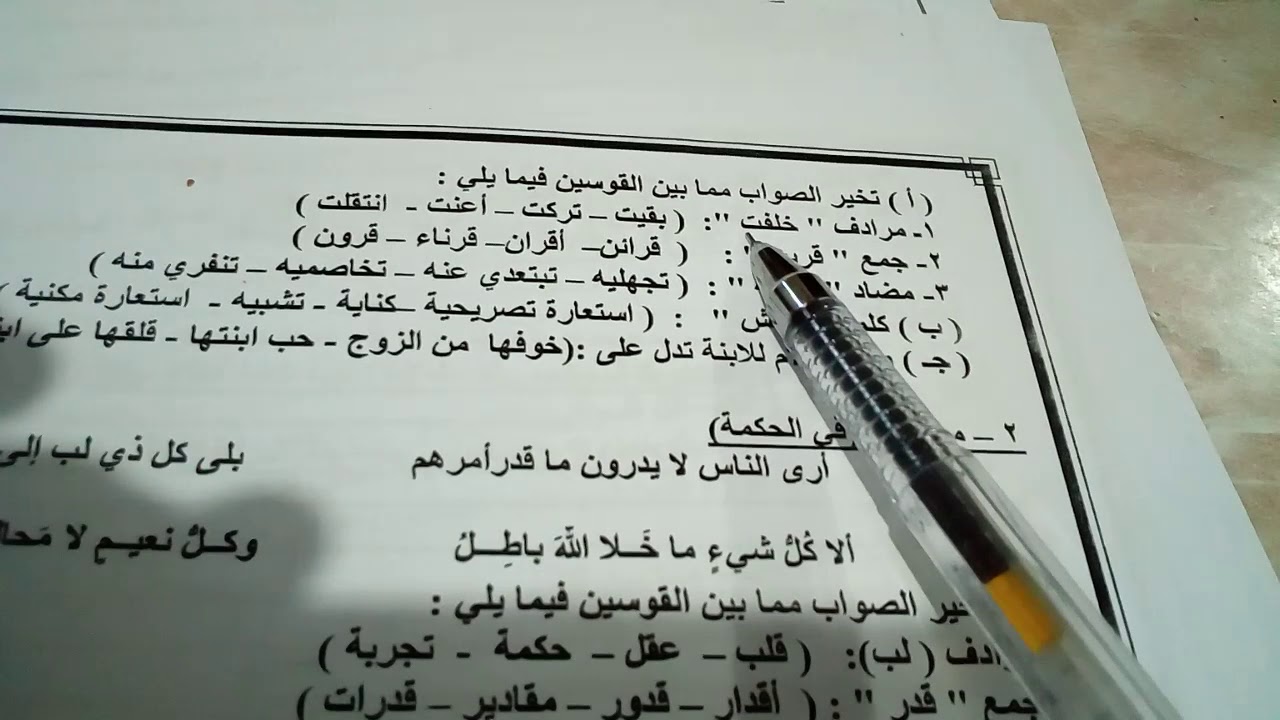 ( أ ) تخير الصواب مما بين القوسين فيما يلي :
١- مرادف " خلفت ": ( بقيت – تركت – أعنت - انتقلت )
٢- جمع " " : ( قرائن– أقران– قرناء – قرون )
٣- مضاد " " : ( تجهليه – تبتعدي عنه – تخاصميه – تنفري منه )
( ب ) " : ( استعارة تصريحية –كناية - تشبيه - استعارة مكنية )
( جـ ) للابنة تدل على :(خوفها من الزوج - حب ابنتها - قلقها على
٢ – في الحكمة)
أرى الناس لا يدرون ما قدرأمرهم بلى كل ذي لب إلى
ألا كُلُّ شيءٍ ما خَلا اللهَ باطِلُ وكلُّ نعيمٍ لا
الصواب مما بين القوسين فيما يلي :
( لب): ( قلب – عقل – حكمة - تجربة )
جمع " قدر " : ( أقدار – قدور – مقادير – قدرات )